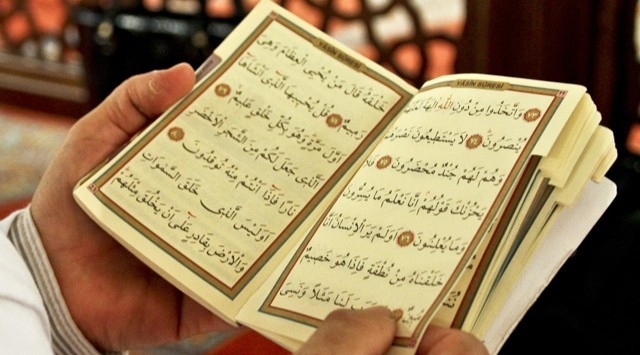 YÂSÎN SÛRESİ
٧٣ وَاتَّخَذُوا مِنْ دُونِ اللّٰهِ اٰلِهَةً
يُنْصَرُونَ ٧٤ لَا يَسْتَطِيعُونَ نَصْرَهُمْ
وَهُمْ لَهُمْ جُنْدٌ مُحْضَرُونَ ٧٥ فَلَا
يَحْزُنْكَ قَوْلُهُمْ اِنَّا نَعْلَمُ مَا يُسِرُّونَ
وَمَا يُعْلِنُونَ ٧٦ اَوَلَمْ يَرَ الْاِنْسَانُ اَنَّا
خَلَقْنَاهُ مِنْ نُطْفَةٍ فَاِذَا هُوَ خَصِيمٌ
مُبِينٌ لَنَا مَثَلًا وَنَسِيَ
YÂSÎN SÛRESİ
خَلْقَهُ قَالَ مَنْ يُحْيِي الْعِظَامَ وَهِيَ
رَمِيمٌ ٧٨ قُلْ يُحْيِيهَا الَّذِي اَنْشَاَهَا
اَوَّلَ مَرَّةٍ وَهُوَ بِكُلِّ خَلْقٍ عَلِيمٌ ٧٩
اَلَّذِي جَعَلَ لَكُمْ مِنَ الشَّجَرِ الْاَخْضَرِ
نَارًا فَاِذَا اَنْتُمْ مِنْهُ تُوقِدُونَ ٨٠
اَوَلَيْسَ الَّذِي خَلَقَ السَّمٰوَاتِ
وَالْاَرْضَ بِقَادِرٍ عَلٰى اَنْ يَخْلُقَ مِثْلَهُمْ